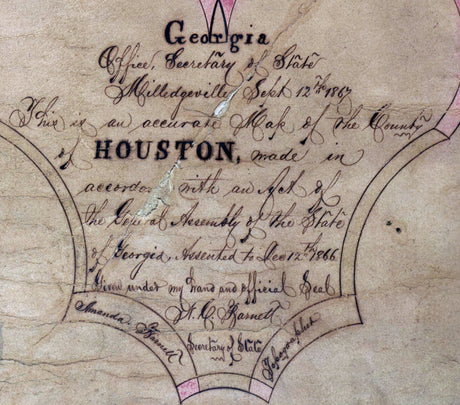 Georgia
Office, Secretary of State
Milledgeville Sept 12th 1867
This is an accurate Map of the County
of HOUSTON, made in
accordance with an Act of
the General Assembly of the State
of Georgia, Assented to Dec 12th 1866
Given under my hand and official Seal
N. C. Barnett
Secretary of State
Amanda Barnett
Topographer